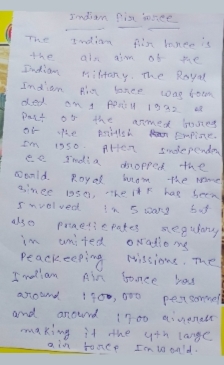 Indian Air force
The Indian Air force is
the air aim of the
Indian Military. The Royal
Indian Air force was foun
ded on 1 April 1932 as
part of the armed forces
of the British Empire.
In 1950. After Independen
ce India dropped the
world. Royal from the name
since 1950. the IAF has been
Involved in 5 wars but
also practicepates regulary
in united onations
peacekeeping Missions. The
Indian Air force has
around 1700,000 personnel
and around 1700 aircraft
making it the 4th large
air force In world.